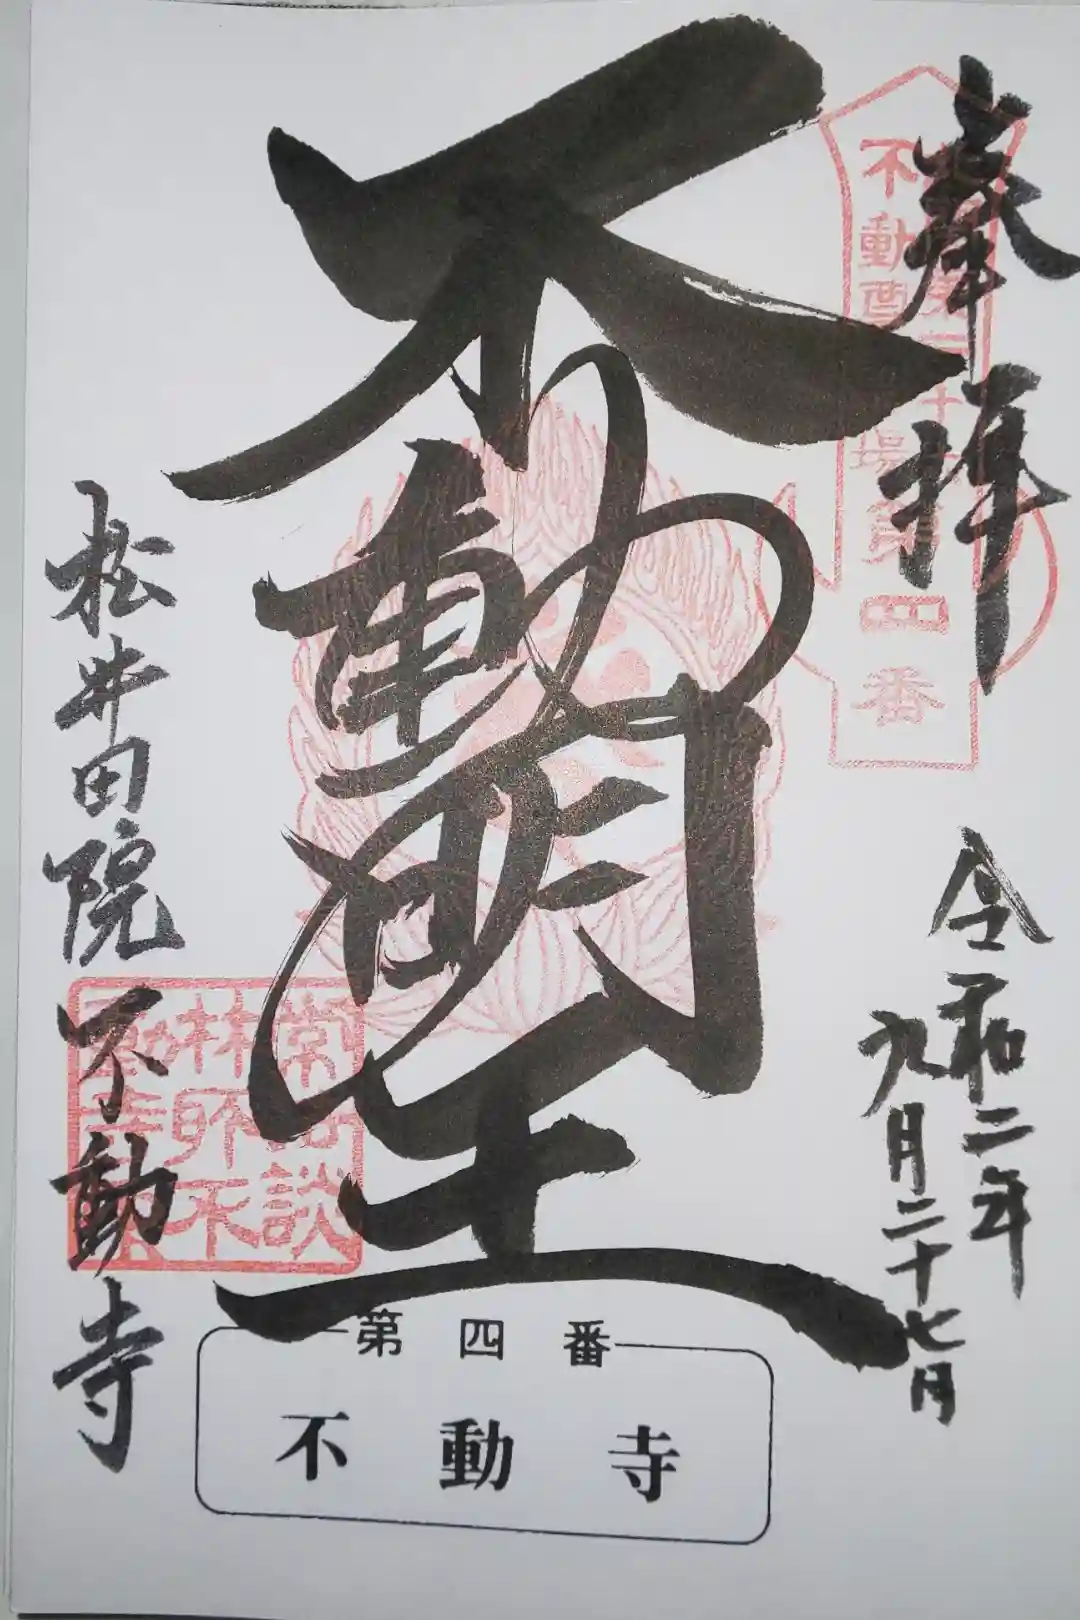 奉拝
令和二年
九月二十七日
不動明王
松井田院不動寺
不動霊場
第四番
常談
林 不
第四番
不動寺